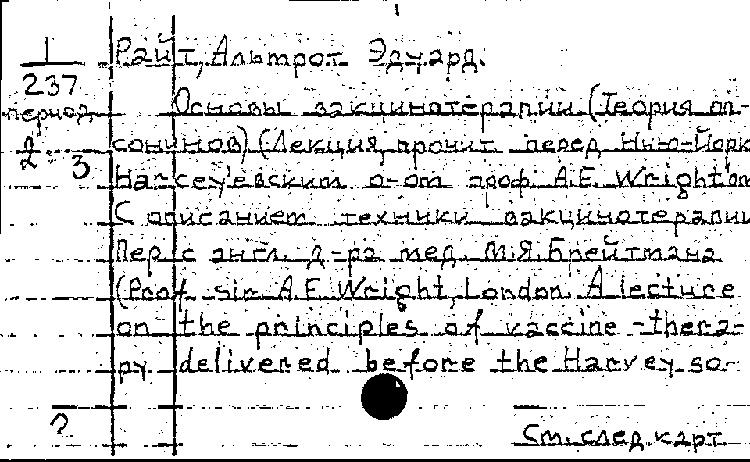 1
237
период
2 3
Райт, Альтрот Эдуард.
Основы вакцинотерапии (Теория оп-
сонинов) (Лекция, прочит. перед Нью-Йорк
Harvey'евским о-ом проф. A.E. Wright'ом
С описанием техники вакцинотерапии
Пер. с англ. д-ра мед. М.Я. Брейтмана
(Prof. sir A.E. Wright, London. A lecture
on the principles of vaccine-thera-
py delivered before the Harvey so-
2
См. след. карт